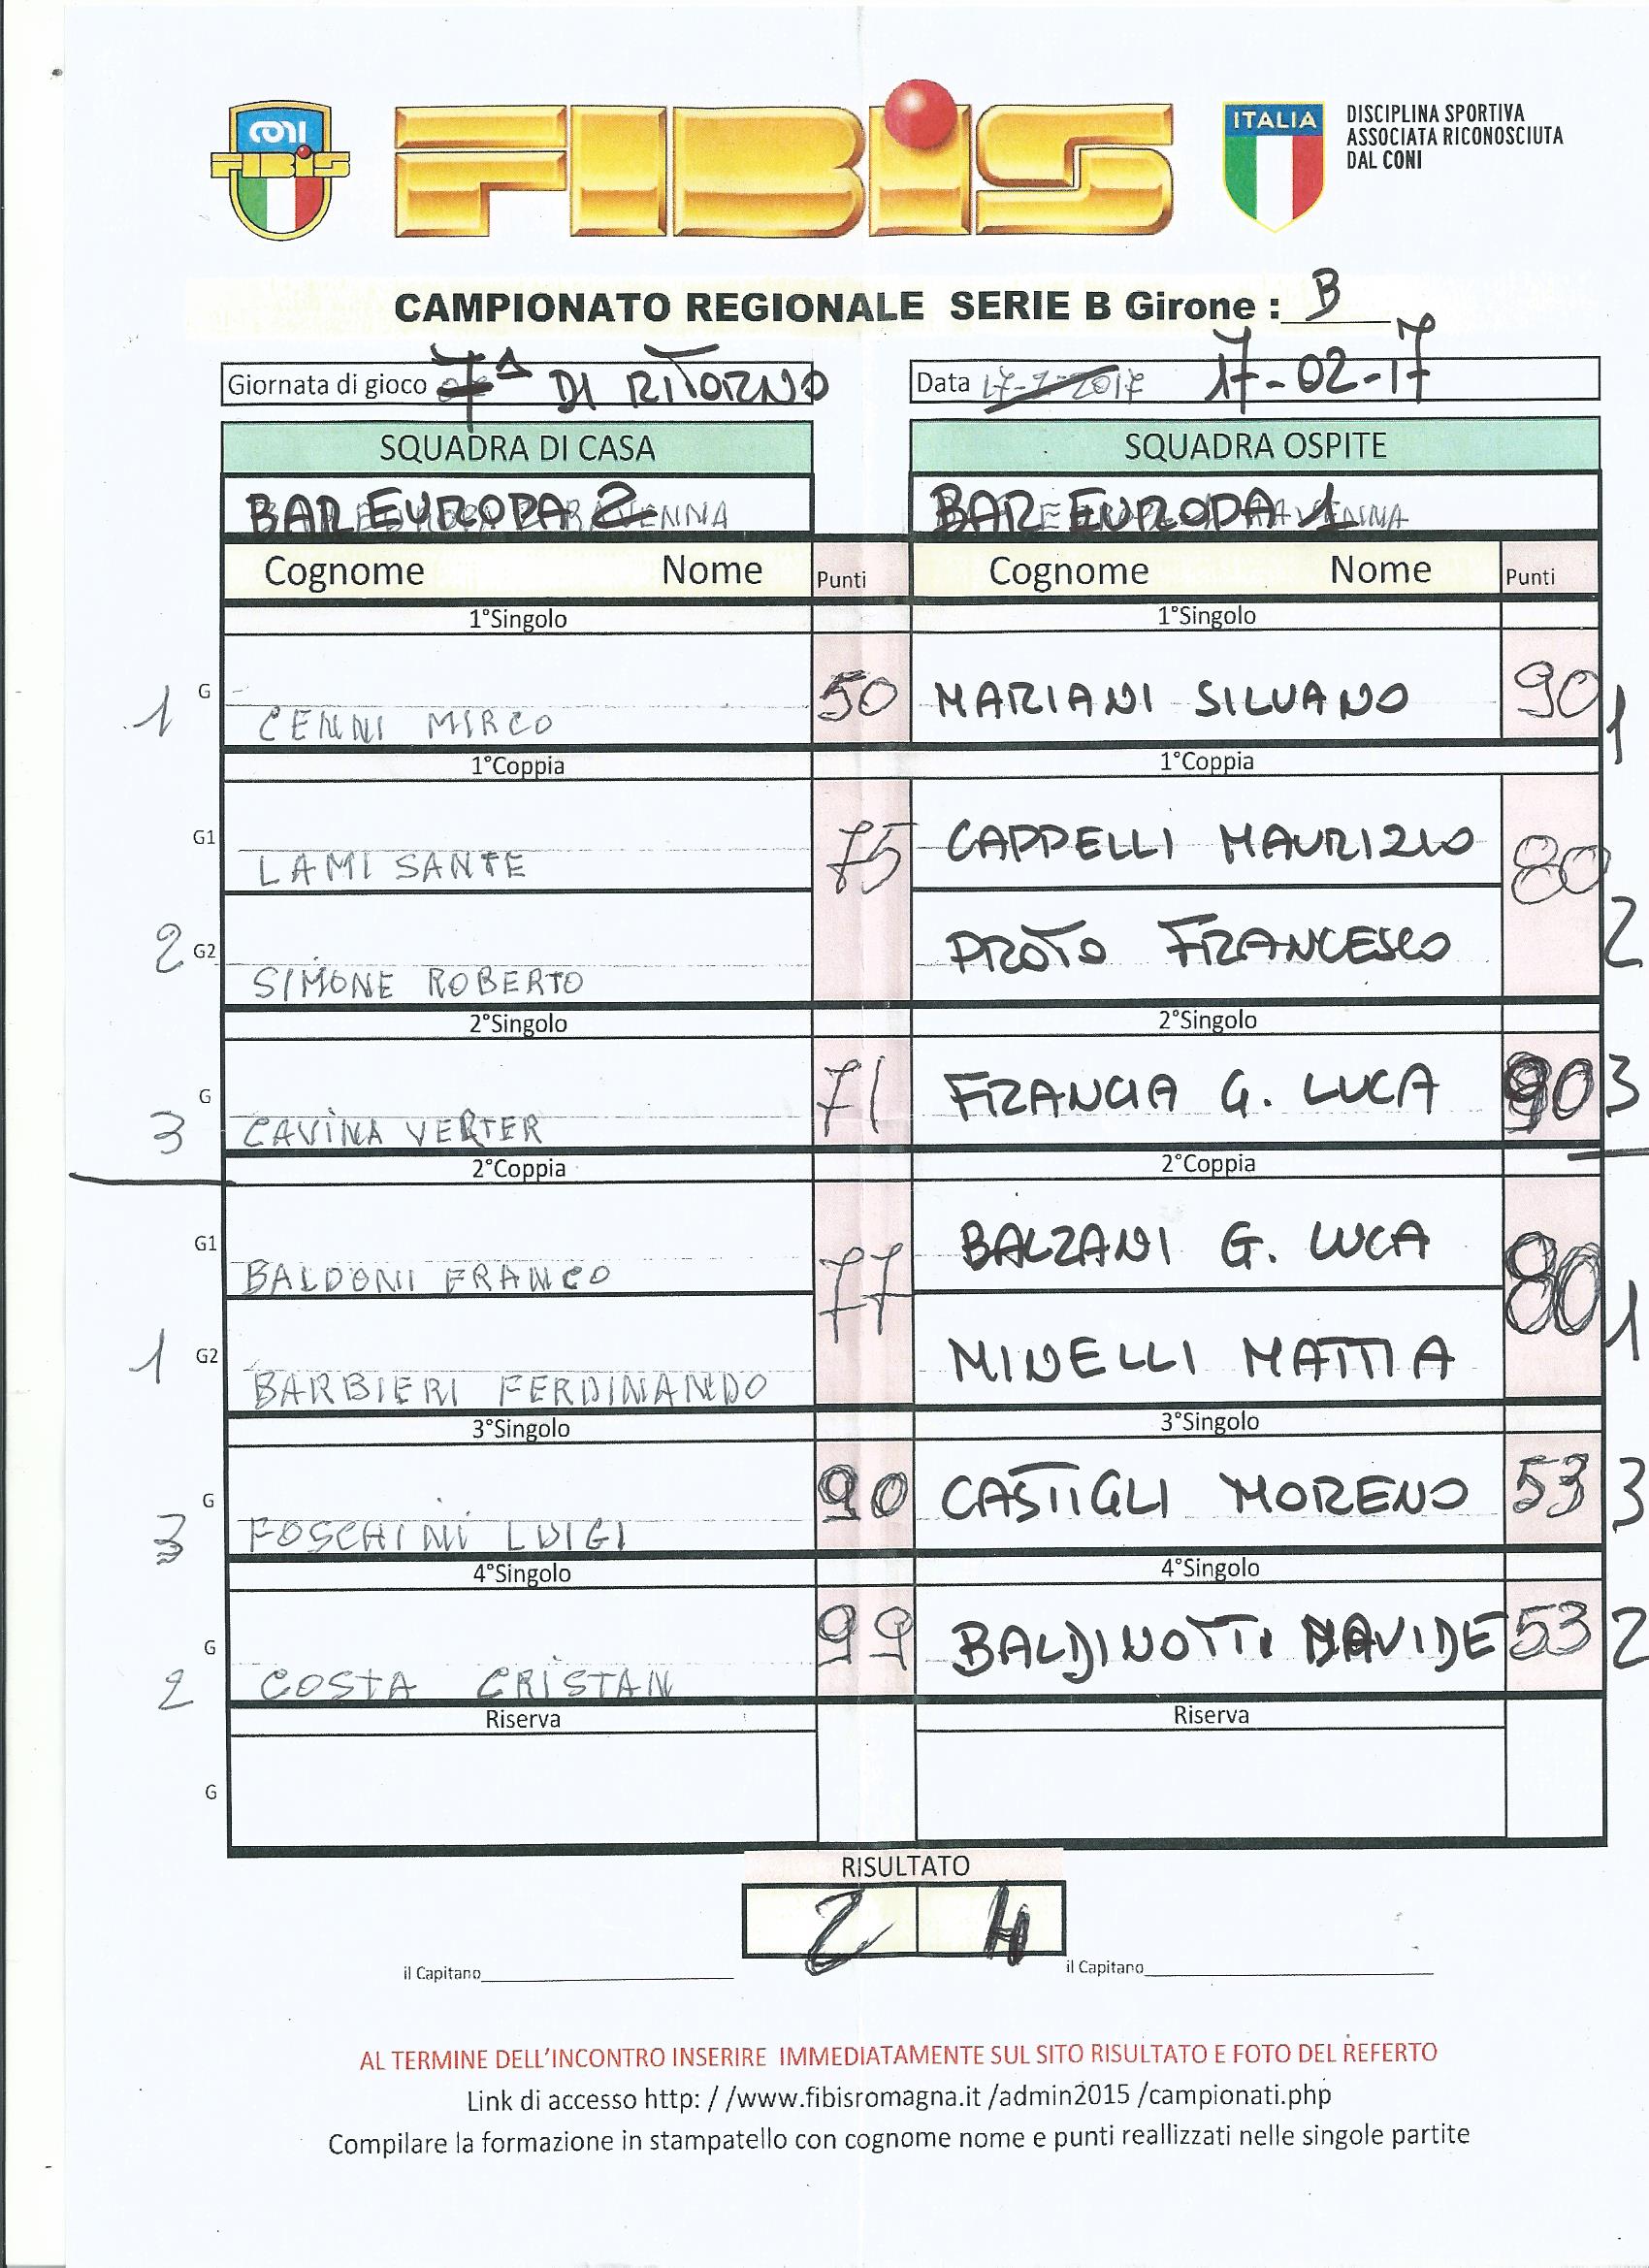 CONI
FIBiS
FIBiS
ITALIA
DISCIPLINA SPORTIVA
ASSOCIATA RICONOSCIUTA
DAL CONI
CAMPIONATO REGIONALE SERIE B Girone : B
Giornata di gioco 7ª DI RITORNO
Data 17-2-2017 17-02-17
SQUADRA DI CASA SQUADRA OSPITE
BAR EUROPA 2 BAR EUROPA 1
Cognome Nome Punti Cognome Nome Punti
1°Singolo 1°Singolo
1 G CENNI MIRCO 50 MARIANI SILVANO 90 1
1°Coppia 1°Coppia
G1 LAMI SANTE 75 CAPPELLI MAURIZIO 80
2 G2 SIMONE ROBERTO PROTO FRANCESCO 2
2°Singolo 2°Singolo
3 G CAVINA VERTER 71 FRANCIA G. LUCA 90 3
2°Coppia 2°Coppia
G1 BALDONI FRANCO 77 BALZANI G. LUCA 80
1 G2 BARBIERI FERDINANDO MINELLI MATTIA 1
3°Singolo 3°Singolo
3 G FOSCHINI LUIGI 90 CASTIGLI MORENO 53 3
4°Singolo 4°Singolo
2 G COSTA CRISTAN 99 BALDINOTTI DAVIDE 53 2
Riserva Riserva
G
RISULTATO
2 4
il Capitano il Capitano
AL TERMINE DELL'INCONTRO INSERIRE IMMEDIATAMENTE SUL SITO RISULTATO E FOTO DEL REFERTO
Link di accesso http: / /www.fibisromagna.it /admin2015 /campionati.php
Compilare la formazione in stampatello con cognome nome e punti reallizzati nelle singole partite